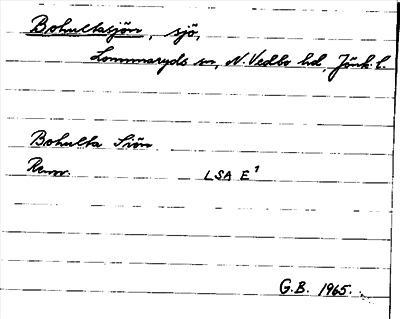 Bohultasjön, sjö,
Lommaryds sn, N. Vedbo hd, Jönk. l.
Bohulta Siön
Renov. LSA E¹
G.B. 1965.